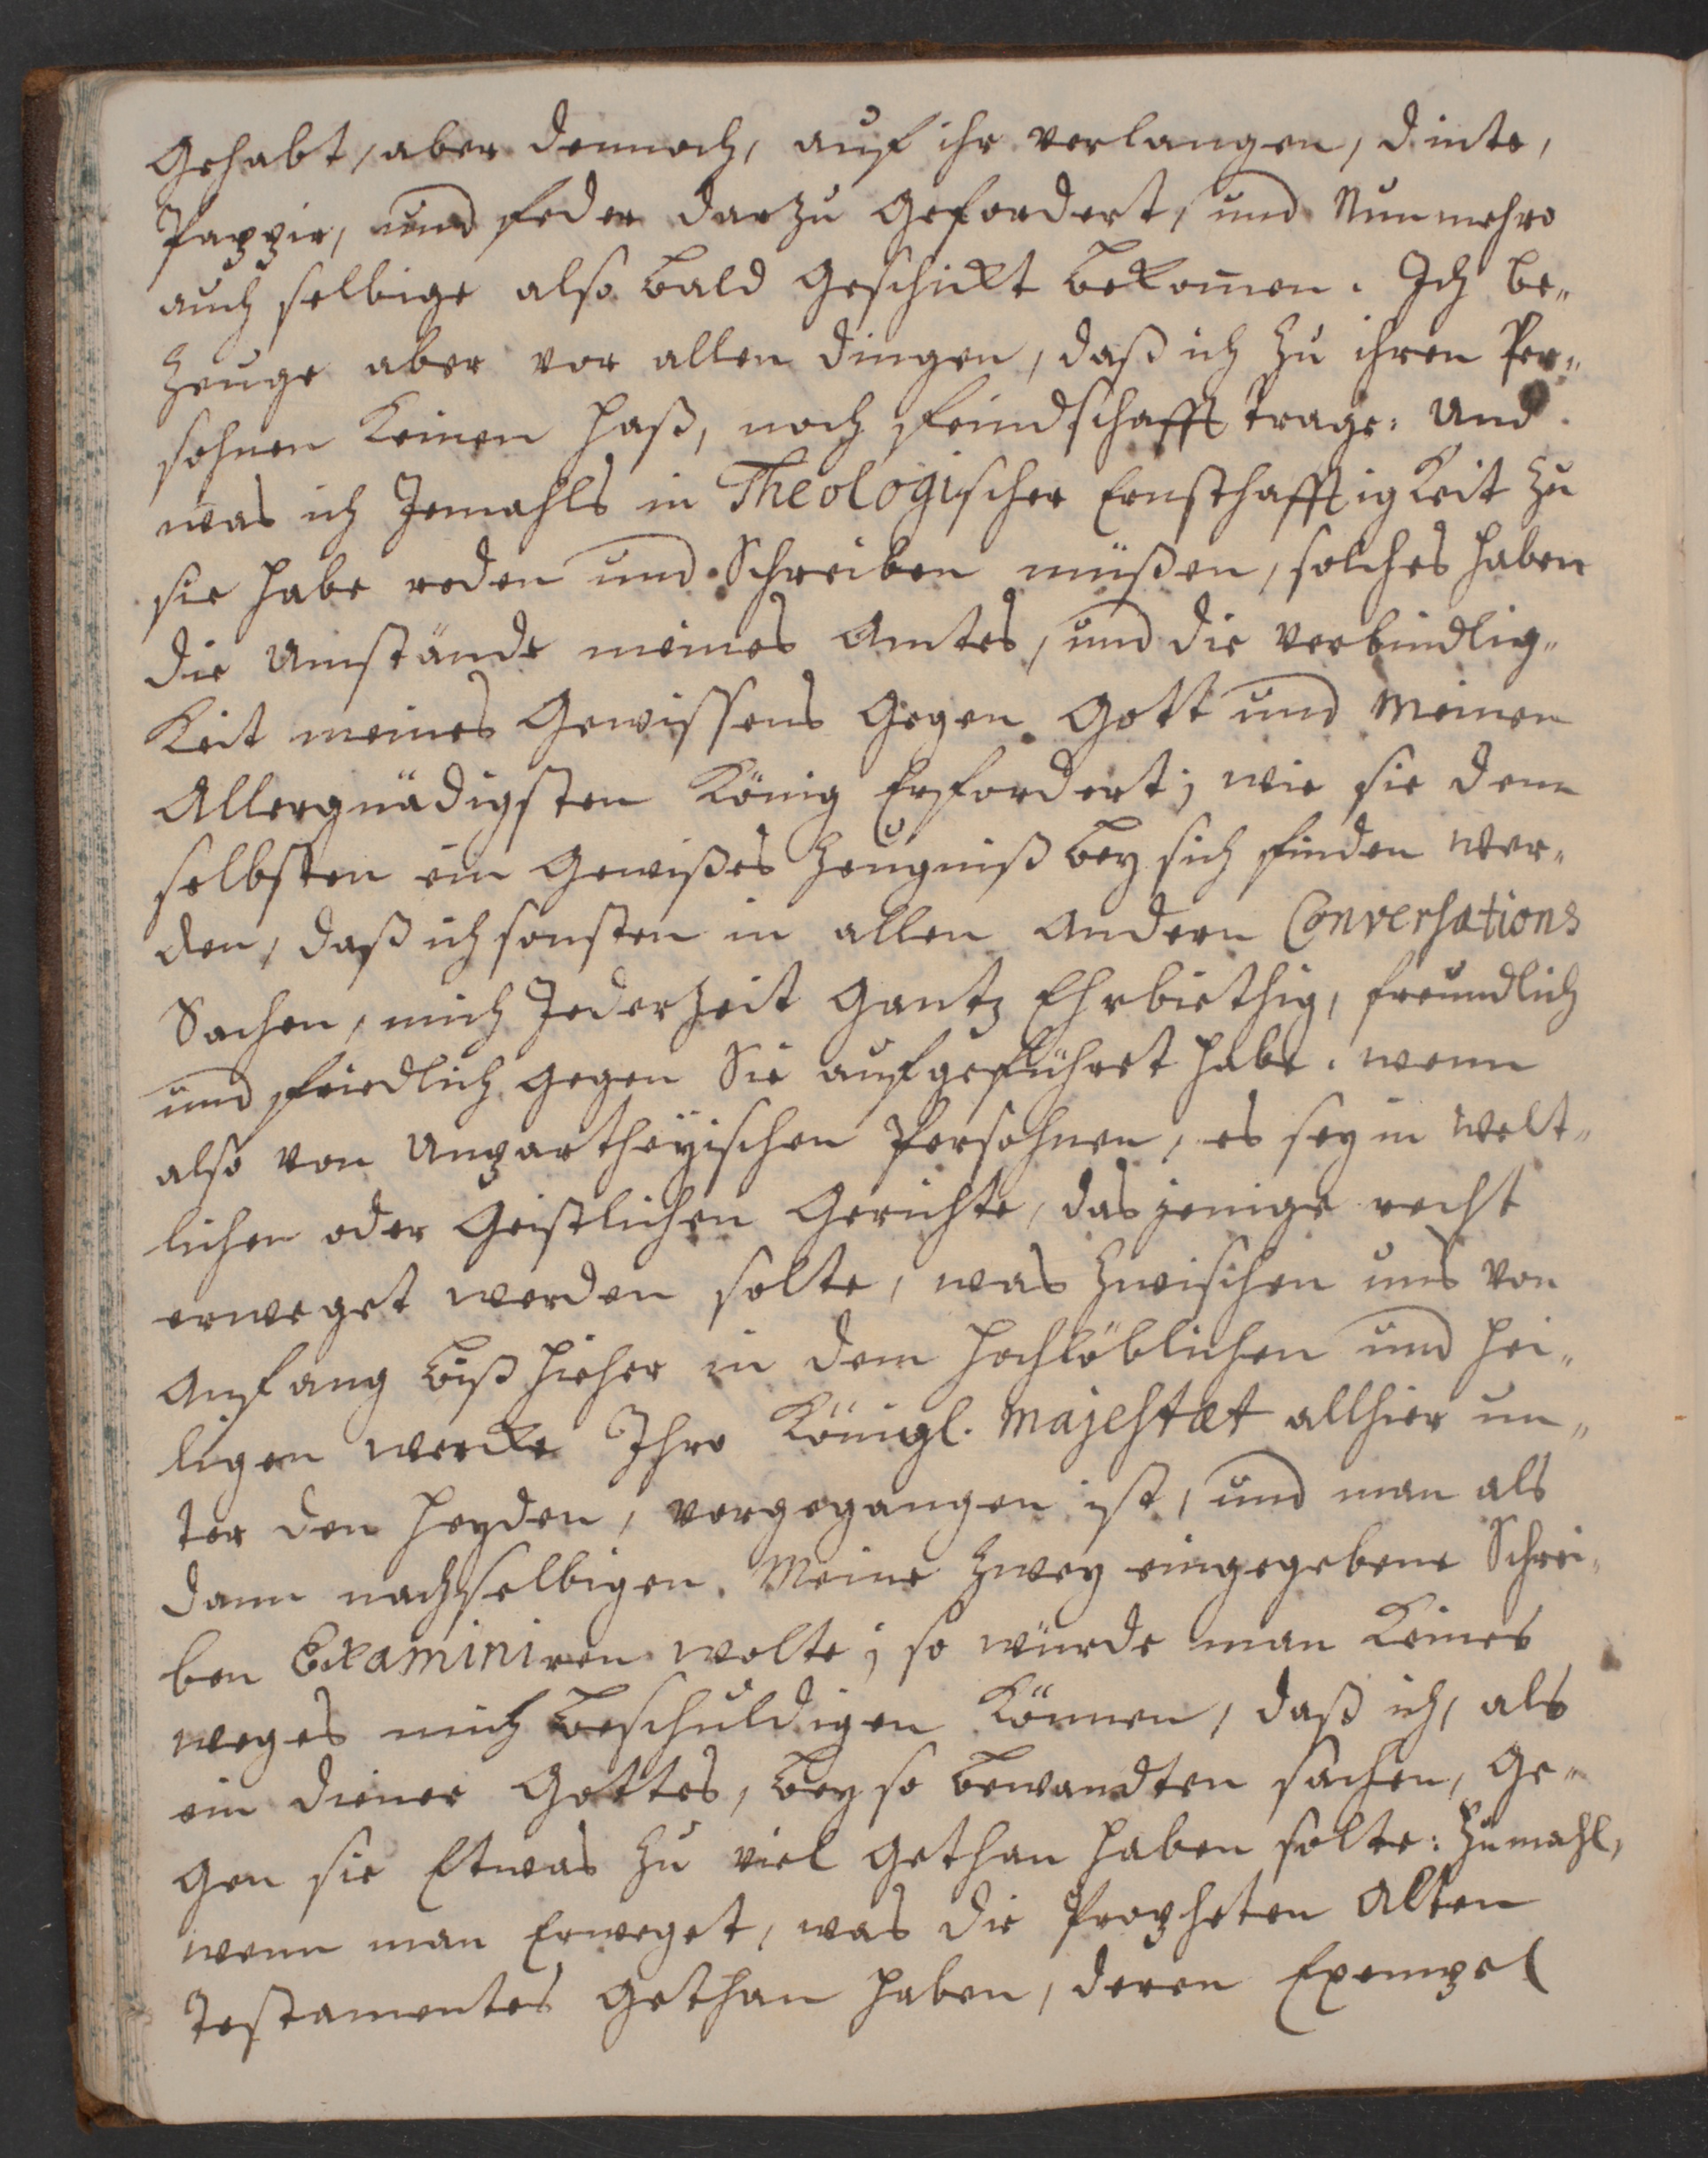 Gehabt, aber dennoch, auf ihr verlangen, dinte,
Pappir, und feder darzu Gefordert, und Nunmehro
auch selbige also bald Geschickt bekom̄en. Ich be„
zeuge aber vor allen dingen, daß ich zu ihren Per„
sohnen Keinen haß, noch feindschafft trage: und
was ich Jemahls in Theologischer Ernsthafftigkeit zu
sie habe reden und Schreiben müßen, solches haben
die Umstände meines Amtes, und die verbindlig„
Keit meines Gewissens Gegen Gott und Meinen
Allergnädigsten König Erfordert; wie sie denn
selbsten ein Gewißes Zeugniß bey sich finden wer„
den, daß ich sonsten in allen Andern Conversations
Sachen, mich Jederzeit Gantz Ehrbiethig, freundlich
und friedlich gegen Sie aufgeführet habe. wenn
also von Unpartheyischen Persohnen, es sey in Welt„
lichen oder Geistlichen Gerichte, das jenige recht
erweget werden solte, was zwischen uns von
Anfang biß hieher in dem hochlöblichen und hei„
ligen wercke Ihro Königl. Majestæt allhier un„
ter den Heyden, vorgegangen ist, und man als
dann nach selbigen. Meine zwey eingegebene Schrei„
ben Examiniren wolte; so würde man Keines
weges mich beschuldigen Können, daß ich, als
ein diener Gottes, bey so bewandten sachen, Ge„
gen sie Etwas zu viel Gethan haben solte: Zumahl,
wenn man Erweget, was die Propheten Alten
Testamentes Gethan haben, deren Exempel